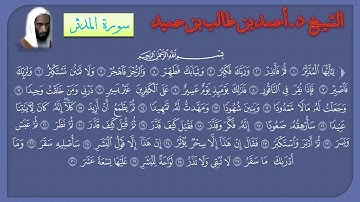 الشيخ د. أحمد بن طالب بن حميد
سورة المدثر
بسم الله الرحمن الرحيم
يَا أَيُّهَا الْمُدَّثِّرُ ۝ قُمْ فَأَنذِرْ ۝ وَرَبَّكَ فَكَبِّرْ ۝ وَثِيَابَكَ فَطَهِّرْ ۝ وَالرُّجْزَ فَاهْجُرْ ۝ وَلَا تَمْنُن تَسْتَكْثِرُ ۝ وَلِرَبِّكَ
فَاصْبِرْ ۝ فَإِذَا نُقِرَ فِي النَّاقُورِ ۝ فَذَٰلِكَ يَوْمَئِذٍ يَوْمٌ عَسِيرٌ ۝ عَلَى الْكَافِرِينَ غَيْرُ يَسِيرٍ ۝ ذَرْنِي وَمَنْ خَلَقْتُ وَحِيدًا ۝
وَجَعَلْتُ لَهُ مَالًا مَّمْدُودًا ۝ وَبَنِينَ شُهُودًا ۝ وَمَهَّدتُّ لَهُ تَمْهِيدًا ۝ ثُمَّ يَطْمَعُ أَنْ أَزِيدَ ۝ كَلَّا إِنَّهُ كَانَ لِآيَاتِنَا
عَنِيدًا ۝ سَأُرْهِقُهُ صَعُودًا ۝ إِنَّهُ فَكَّرَ وَقَدَّرَ ۝ فَقُتِلَ كَيْفَ قَدَّرَ ۝ ثُمَّ قُتِلَ كَيْفَ قَدَّرَ ۝ ثُمَّ نَظَرَ ۝ ثُمَّ عَبَسَ
وَبَسَرَ ۝ ثُمَّ أَدْبَرَ وَاسْتَكْبَرَ ۝ فَقَالَ إِنْ هَٰذَا إِلَّا سِحْرٌ يُؤْثَرُ ۝ إِنْ هَٰذَا إِلَّا قَوْلُ الْبَشَرِ ۝ سَأُصْلِيهِ سَقَرَ ۝ وَمَا
أَدْرَاكَ مَا سَقَرُ ۝ لَا تُبْقِي وَلَا تَذَرُ ۝ لَوَّاحَةٌ لِّلْبَشَرِ ۝ عَلَيْهَا تِسْعَةَ عَشَرَ ۝